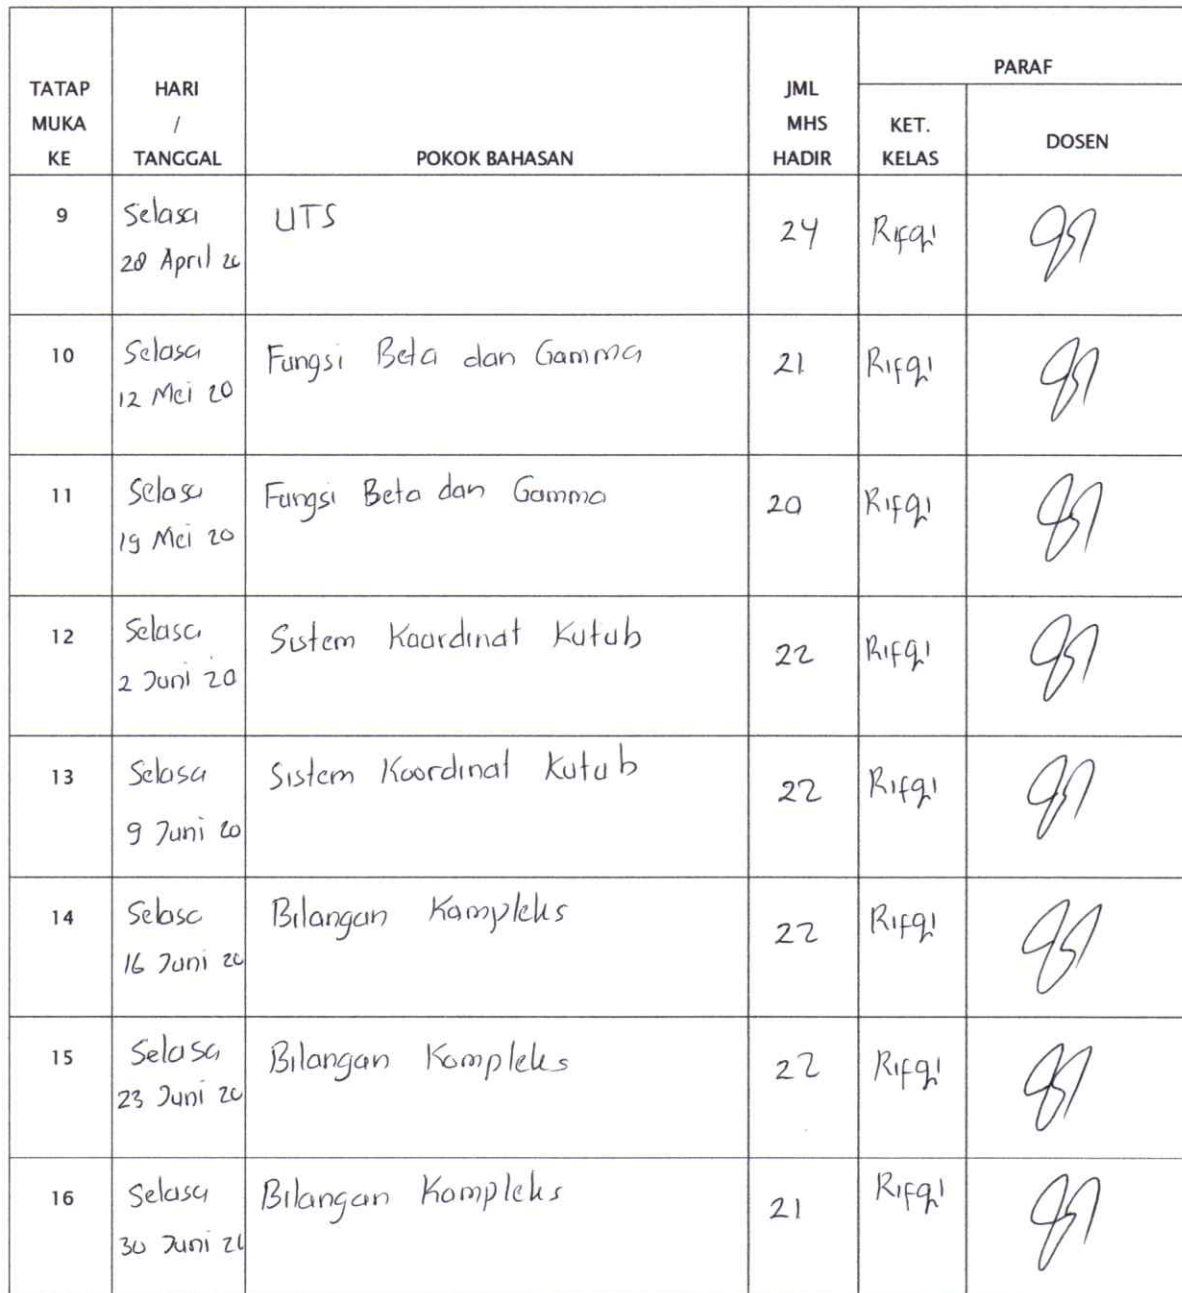 TATAP MUKA KE | HARI / TANGGAL | POKOK BAHASAN | JML MHS HADIR | PARAF
KET. KELAS | DOSEN
9 | Selasa 28 April 20 | UTS | 24 | Rifqi
10 | Selasa 12 Mei 20 | Fungsi Beta dan Gamma | 21 | Rifqi
11 | Selasa 19 Mei 20 | Fungsi Beta dan Gamma | 20 | Rifqi
12 | Selasa 2 Juni 20 | Sistem Koordinat Kutub | 22 | Rifqi
13 | Selasa 9 Juni 20 | Sistem Koordinat Kutub | 22 | Rifqi
14 | Selasa 16 Juni 20 | Bilangan Kompleks | 22 | Rifqi
15 | Selasa 23 Juni 20 | Bilangan Kompleks | 22 | Rifqi
16 | Selasa 30 Juni 20 | Bilangan Kompleks | 21 | Rifqi